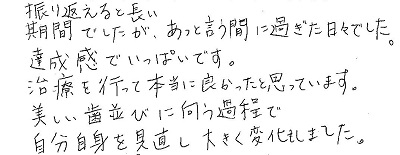 振り返えると長い
期間でしたが、あっと言う間に過ぎた日々でした。
達成感でいっぱいです。
治療を行って本当に良かったと思っています。
美しい歯並びに向う過程で
自分自身を見直し大きく変化もしました。